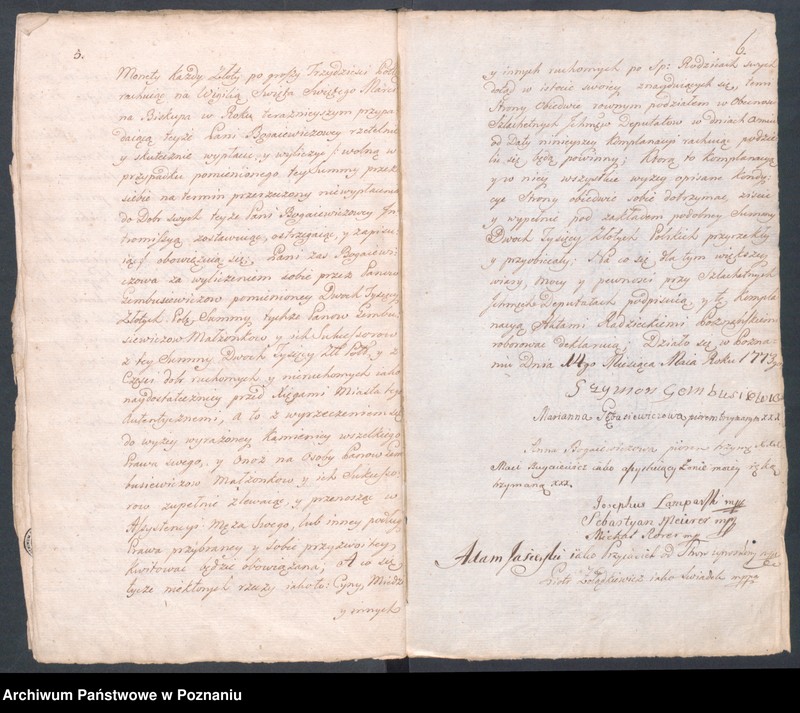 5.
Monety każdy Złoty po groszy Trzydzieści
rachuiąc na Wigilią Swięta Swiętego Marci
na Biskupa w Roku teraznieyszym przypa
daiącą teyże Pani Bogaiewiczowy rzetelnie
y skutecznie wypłacić, y wyliczyć wolną w
przypadku pomienioney teyże Summy przez
siebie na termin przerzeczony niewypłacenia
do Dobr swych teyże Pani Bogaiewiczowy In
tromissyą zostawuiąc, ostrzegaiąc, y zapisu
iąc obowiązuią się; Pani zas Bogaiewi
czowa za wyliczeniem sobie przez Panow
Gembusiewiczow pomienioney Dwoch Tysięcy
Złotych Pols. Summy tychże Panow Gembu
siewiczow Małżonkow y ich Sukcessorow
z tey Summy Dwoch Tysięcy y z
Części dobr ruchomych y nieruchomych iako
naydostateczniey przed Xięgami Miasta
Autentycznemi, a to z wyrzeczeniem się
do wyzy wyrażoney Kamienicy wszelkiego
Prawa swego, y Onoż na Osoby Panow Gem
busiewiczow Małżonkow y ich Sukcesso
row zupełnie zlewaiąc y przenosząc w
Assystencyi Męża Swego, lub inney podług
Prawa przybraney y sobie przyzwoitey
kwitować będzie obowiązana; A co się
tycze niektorych rzeczy iakoto: Cyny, Miedzi
y innych
6.
y innych ruchomych po Sp: Rodzicach swych
dotąd w istocie swoiey znayduiących się, temi
Strony Obiedwie rownym podziałem w Obecnosci
Szlachetnych Ichmciow Deputatow w dniach
od Daty ninieyszey Komplanacyi rachuiąc podzie
lić się będą powinny; ktorą to Komplanacyą
y w niey wszystkie wyzey opisane Kondy
cye Strony obiedwie sobie dotrzymać, ziscić
y wypełnić pod zakładem podobney Summy
Dwoch Tysięcy Złotych Polskich przyrzekły
y przyobiecały; Na co się dla tym większey
wiary, mocy y pewności przy Szlachetnych
Ichmciach Deputatach podpisuią, y tę Kompla
nacyą Aktami Radzieckiemi Poznańskiemi
roborować deklaruią; Działo się w Pozna
niu Dnia 14go Miesiąca Maia Roku 1773go
Szymon Gembusiewicz
Marianna Gębasiewiczowa piorem trzymanym xxx
Anna Bogaiewiczowa piorem trzymanym xxx
iako assystuiący Żonie moiey ręką
trzymaną xxx
Josephus Lamparski mpp
Sebastyan Meirer mpp
Michał Rorer mpp
Adam Jasinski iako Przyiaciel od Stron uproszony
Piotr Zołądkiewicz iako Swiadek mppa
Archiwum Państwowe w Poznaniu